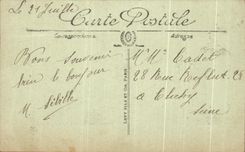 Le 21 Juillet
Carte Postale
Correspondance
Adresse
Bons souvenir
bien le bonjour
M.
LEVY FILS ET CIE, PARIS
Mr Mme Cadet
28 Rue 28
à Clichy
Seine